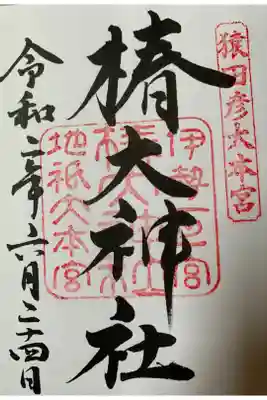 猿田彦大本宮
椿大神社
伊勢一宮
地祇大本宮
令和二年六月二十四日